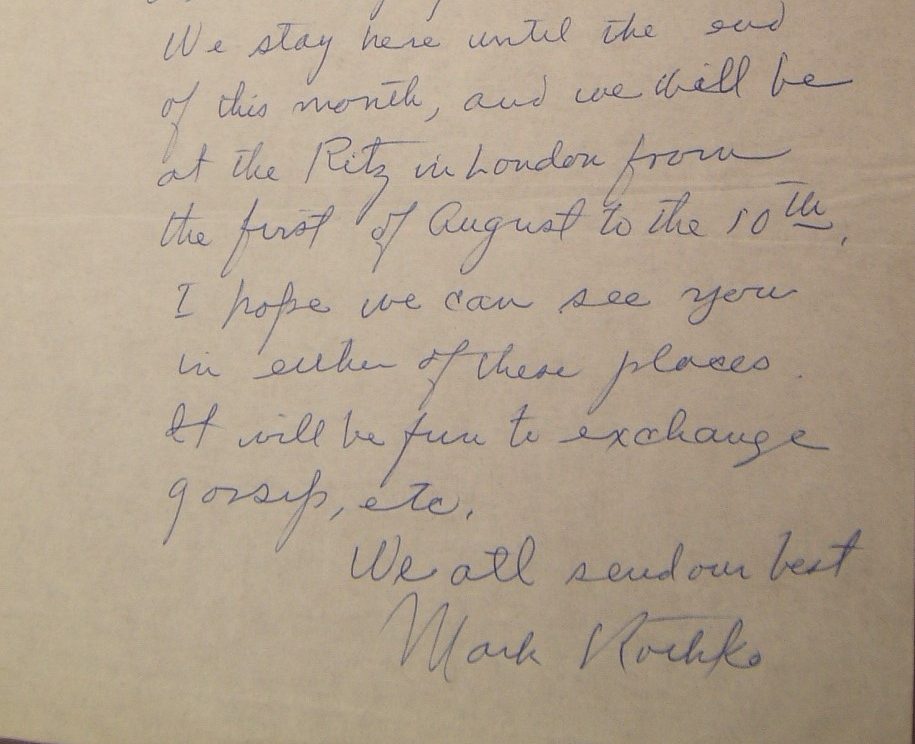 We stay here until the end
of this month, and we will be
at the Ritz in London from
the first of August to the 10th.
I hope we can see you
in either of these places.
It will be fun to exchange
gossip, etc.
We all send our best
Mark Rothko